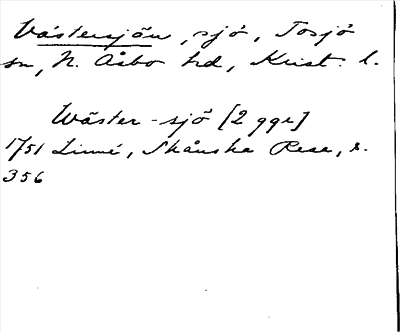 Västersjön, sjö, Tosjö
sn, N. Åsbo hd, Krist. l.
Wäster-sjö [2 ggr]
1751 Linné, Skånska Resa, s.
356